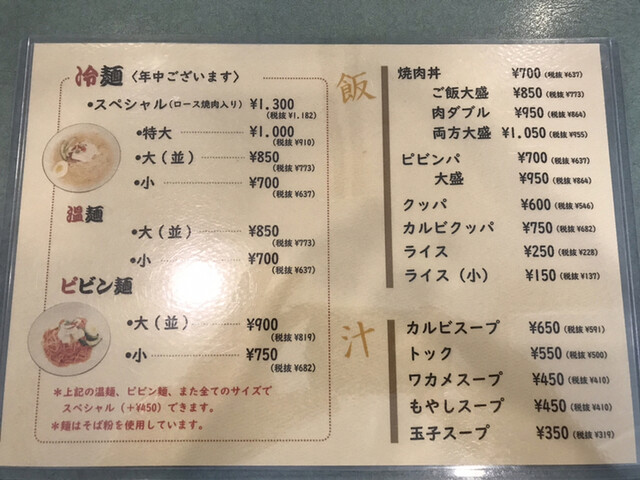 冷麺〈年中ございます〉
•スペシャル(ロース焼肉入り) ¥1.300
(税抜 ¥1.182)
•特大 ¥1.000
(税抜 ¥910)
•大(並) ¥850
(税抜 ¥773)
•小 ¥700
(税抜 ¥637)
温麺
•大(並) ¥850
(税抜 ¥773)
•小 ¥700
(税抜 ¥637)
ピビン麺
•大(並) ¥900
(税抜 ¥819)
•小 ¥750
(税抜 ¥682)
*上記の温麺、ピビン麺、また全てのサイズで
スペシャル(+¥450)できます。
*麺はそば粉を使用しています。
飯
焼肉丼 ¥700(税抜 ¥637)
ご飯大盛 ¥850(税抜 ¥773)
肉ダブル ¥950(税抜 ¥864)
両方大盛 ¥1.050(税抜 ¥955)
ピビンパ ¥700(税抜 ¥637)
大盛 ¥950(税抜 ¥864)
クッパ ¥600(税抜 ¥546)
カルビクッパ ¥750(税抜 ¥682)
ライス ¥250(税抜 ¥228)
ライス(小) ¥150(税抜 ¥137)
汁
カルビスープ ¥650(税抜 ¥591)
トック ¥550(税抜 ¥500)
ワカメスープ ¥450(税抜 ¥410)
もやしスープ ¥450(税抜 ¥410)
玉子スープ ¥350(税抜 ¥319)